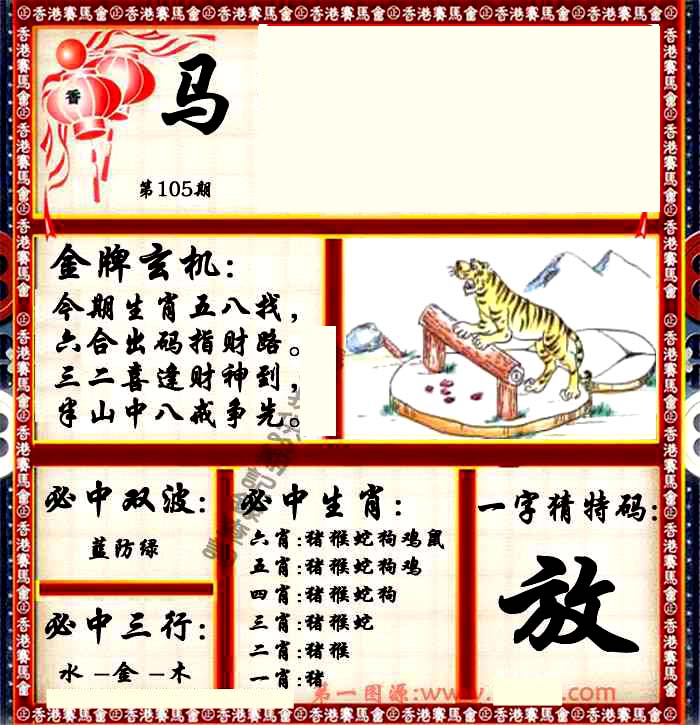 香港賽馬會 香港賽馬會 香港賽馬會 香港賽馬會 香港賽馬會 香港賽馬會 香港賽馬會
香
马
第105期
金牌玄机:
今期生肖五八找,
六合出码指财路。
三二喜逢财神到,
半山中八戒争先。
必中双波:
蓝防绿
必中三行:
水-金-木
必中生肖:
六肖:猪猴蛇狗鸡鼠
五肖:猪猴蛇狗鸡
四肖:猪猴蛇狗
三肖:猪猴蛇
二肖:猪猴
一肖:猪
一字猜特码:
放
第一图源:www. .com
香港賽馬會 香港賽馬會 香港賽馬會 香港賽馬會 香港賽馬會 香港賽馬會 香港賽馬會